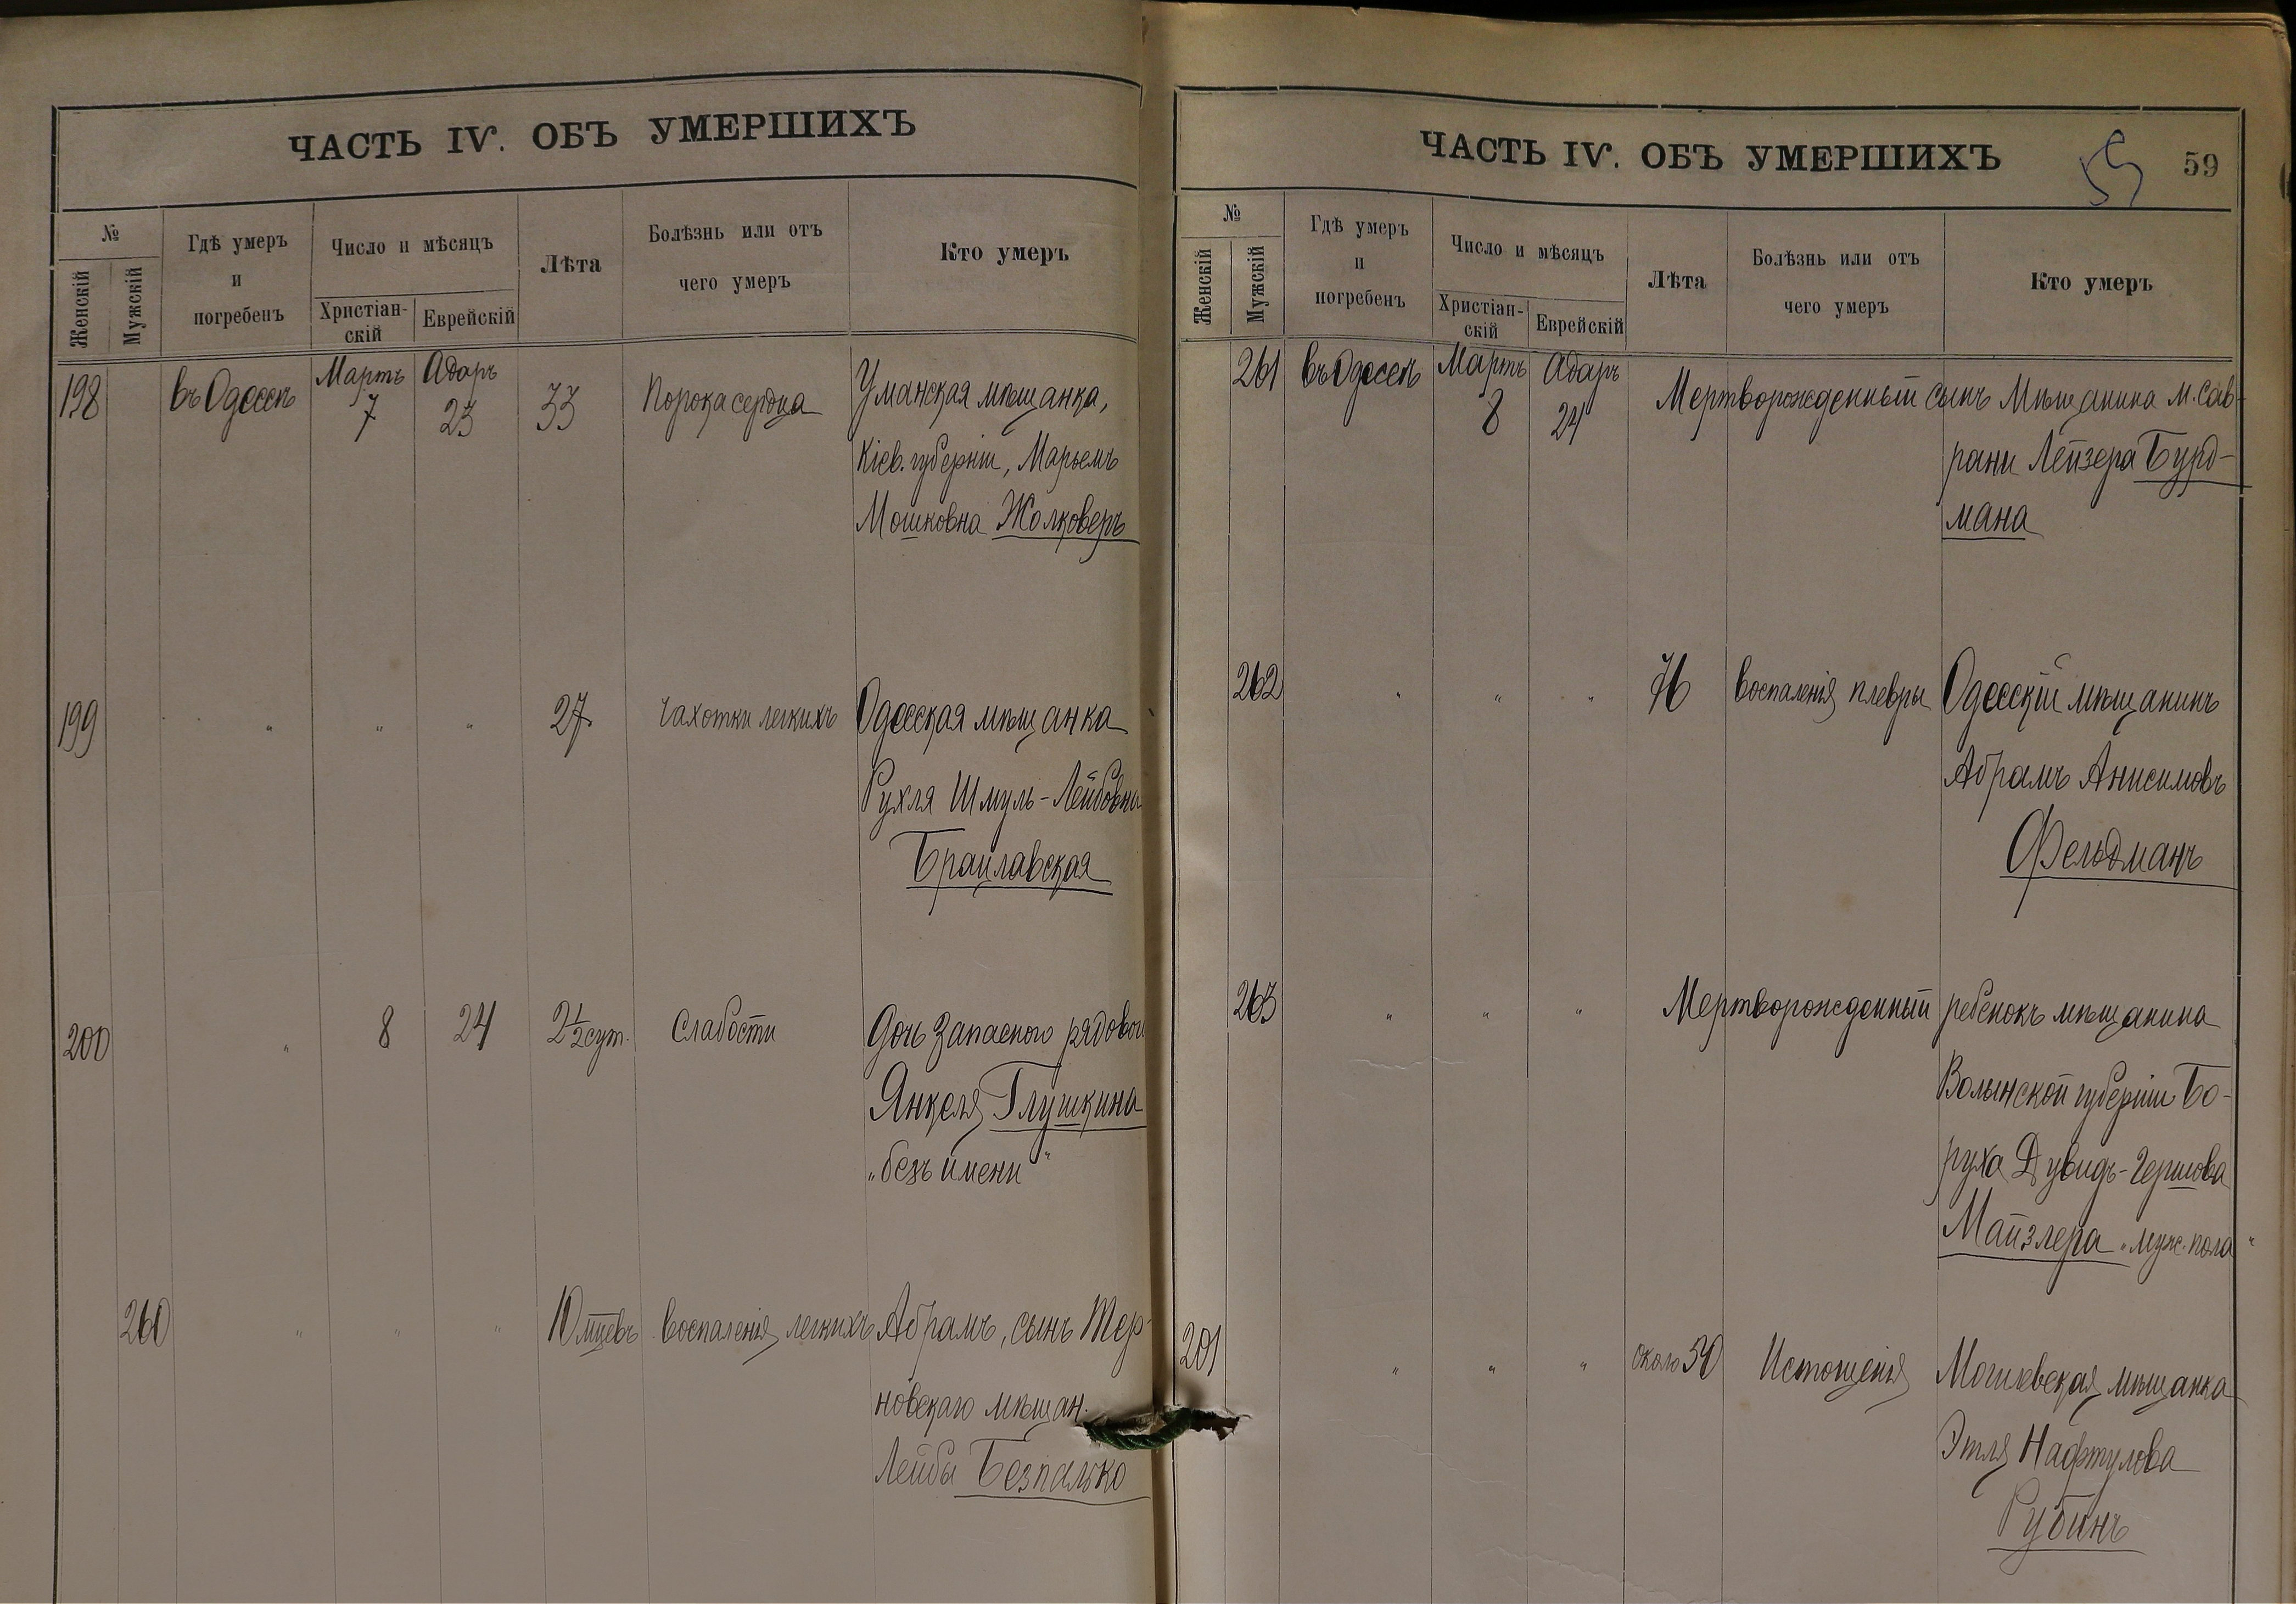 ЧАСТЬ IV. ОБЪ УМЕРШИХЪ
№
Женскій
Мужскій
Гдѣ умеръ
и
погребенъ
Число и мѣсяцъ
Христіан-
скій
Еврейскій
Лѣта
Болѣзнь или отъ
чего умеръ
Кто умеръ
198 въ Одессѣ Мартъ 7 Адаръ 23 33 Порока сердца Уманская мѣщанка,
Кіев. губерніи, Марьемъ
Мошковна Жолковеръ
199 " " " 27 Чахотки легкихъ Одесская мѣщанка
Рухля Шмуль-Лейбовна
Браилавская
200 " 8 24 2½ сут. Слабости Дочь запасного рядового
Янкеля Глушкина
„безъ имени“
260 " " " 10 мцевъ воспаленія легкихъ Абрамъ, сынъ Тер-
новскаго мѣщан.
Лейбы Безпалько
ЧАСТЬ IV. ОБЪ УМЕРШИХЪ
59
59
№
Женскій
Мужскій
Гдѣ умеръ
и
погребенъ
Число и мѣсяцъ
Христіан-
скій
Еврейскій
Лѣта
Болѣзнь или отъ
чего умеръ
Кто умеръ
261 въ Одессѣ Мартъ 8 Адаръ 24 Мертворожденный сынъ Мѣщанина м. Сав-
рани Лейзера Бурд-
мана
262 " " " 76 воспаленія плевры Одесскій мѣщанинъ
Абрамъ Анисимовъ
Фельдманъ
263 " " " Мертворожденный ребенокъ мѣщанина
Волынской губерніи Бо-
руха Дувидъ-Гершова
Майзлера „муж. пола“
201 " " " около 50 Истощенія Могилевская мѣщанка
Этля Нафтулова
Рубинъ